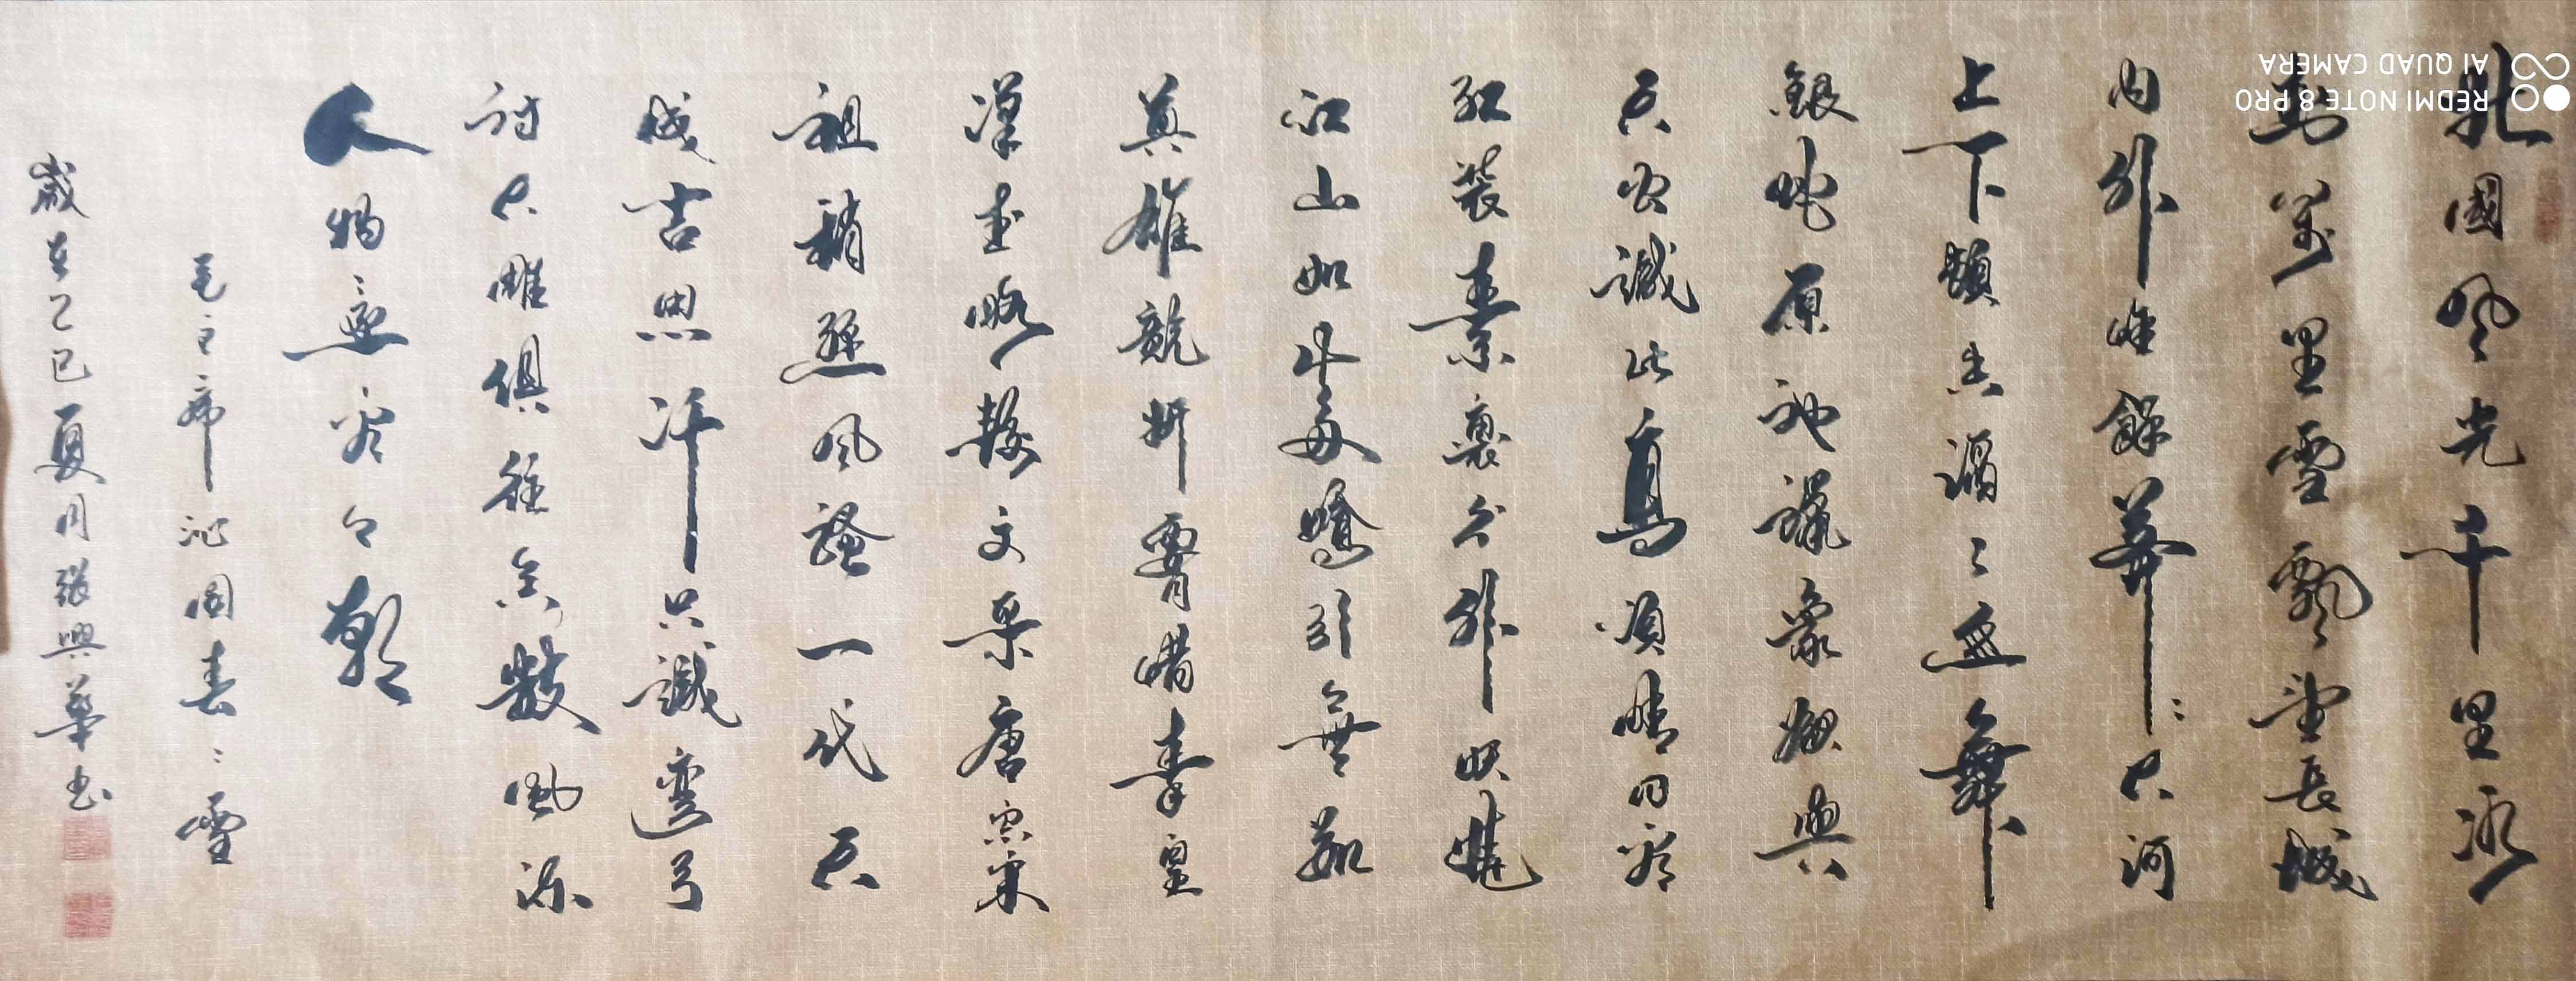 北國風光千里冰
封萬里雪飄望長城
內外惟餘莽〻大河
上下頓失滔〻山舞
銀蛇原馳蠟象欲與
天公試比高須晴日看
紅裝素裹分外妖嬈
江山如此多嬌引無數
英雄競折腰惜秦皇
漢武略輸文采唐宗宋
祖稍遜風騷一代天
成吉思汗只識彎弓
射大雕俱往矣數風流
人物還看今朝
毛主席沁園春〻雪
歲在乙巳夏月張興華書
REDMI NOTE 8 PRO
AI QUAD CAMERA